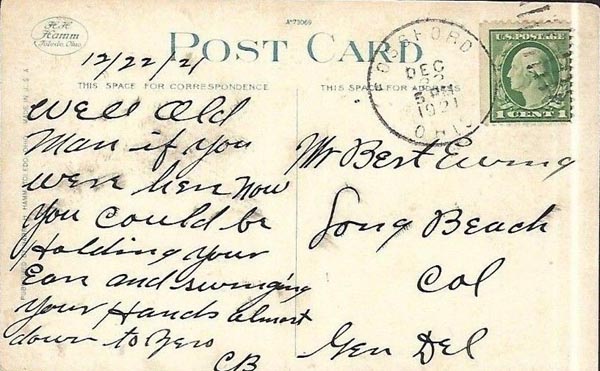 H.H. Hamm
Toledo, Ohio.
A-73069
POST CARD
12/22/21
THIS SPACE FOR CORRESPONDENCE
THIS SPACE FOR ADDRESS
DEC
22
1921
OHIO
U.S. POSTAGE
1 CENT 1
Well Old
Man if you
were here now
you could be
Holding your
Ears and swinging
your Hands almost
down to Zero
CB
Mr Bert Ewing
Long Beach
Cal
Gen Del
MADE IN U.S.A.